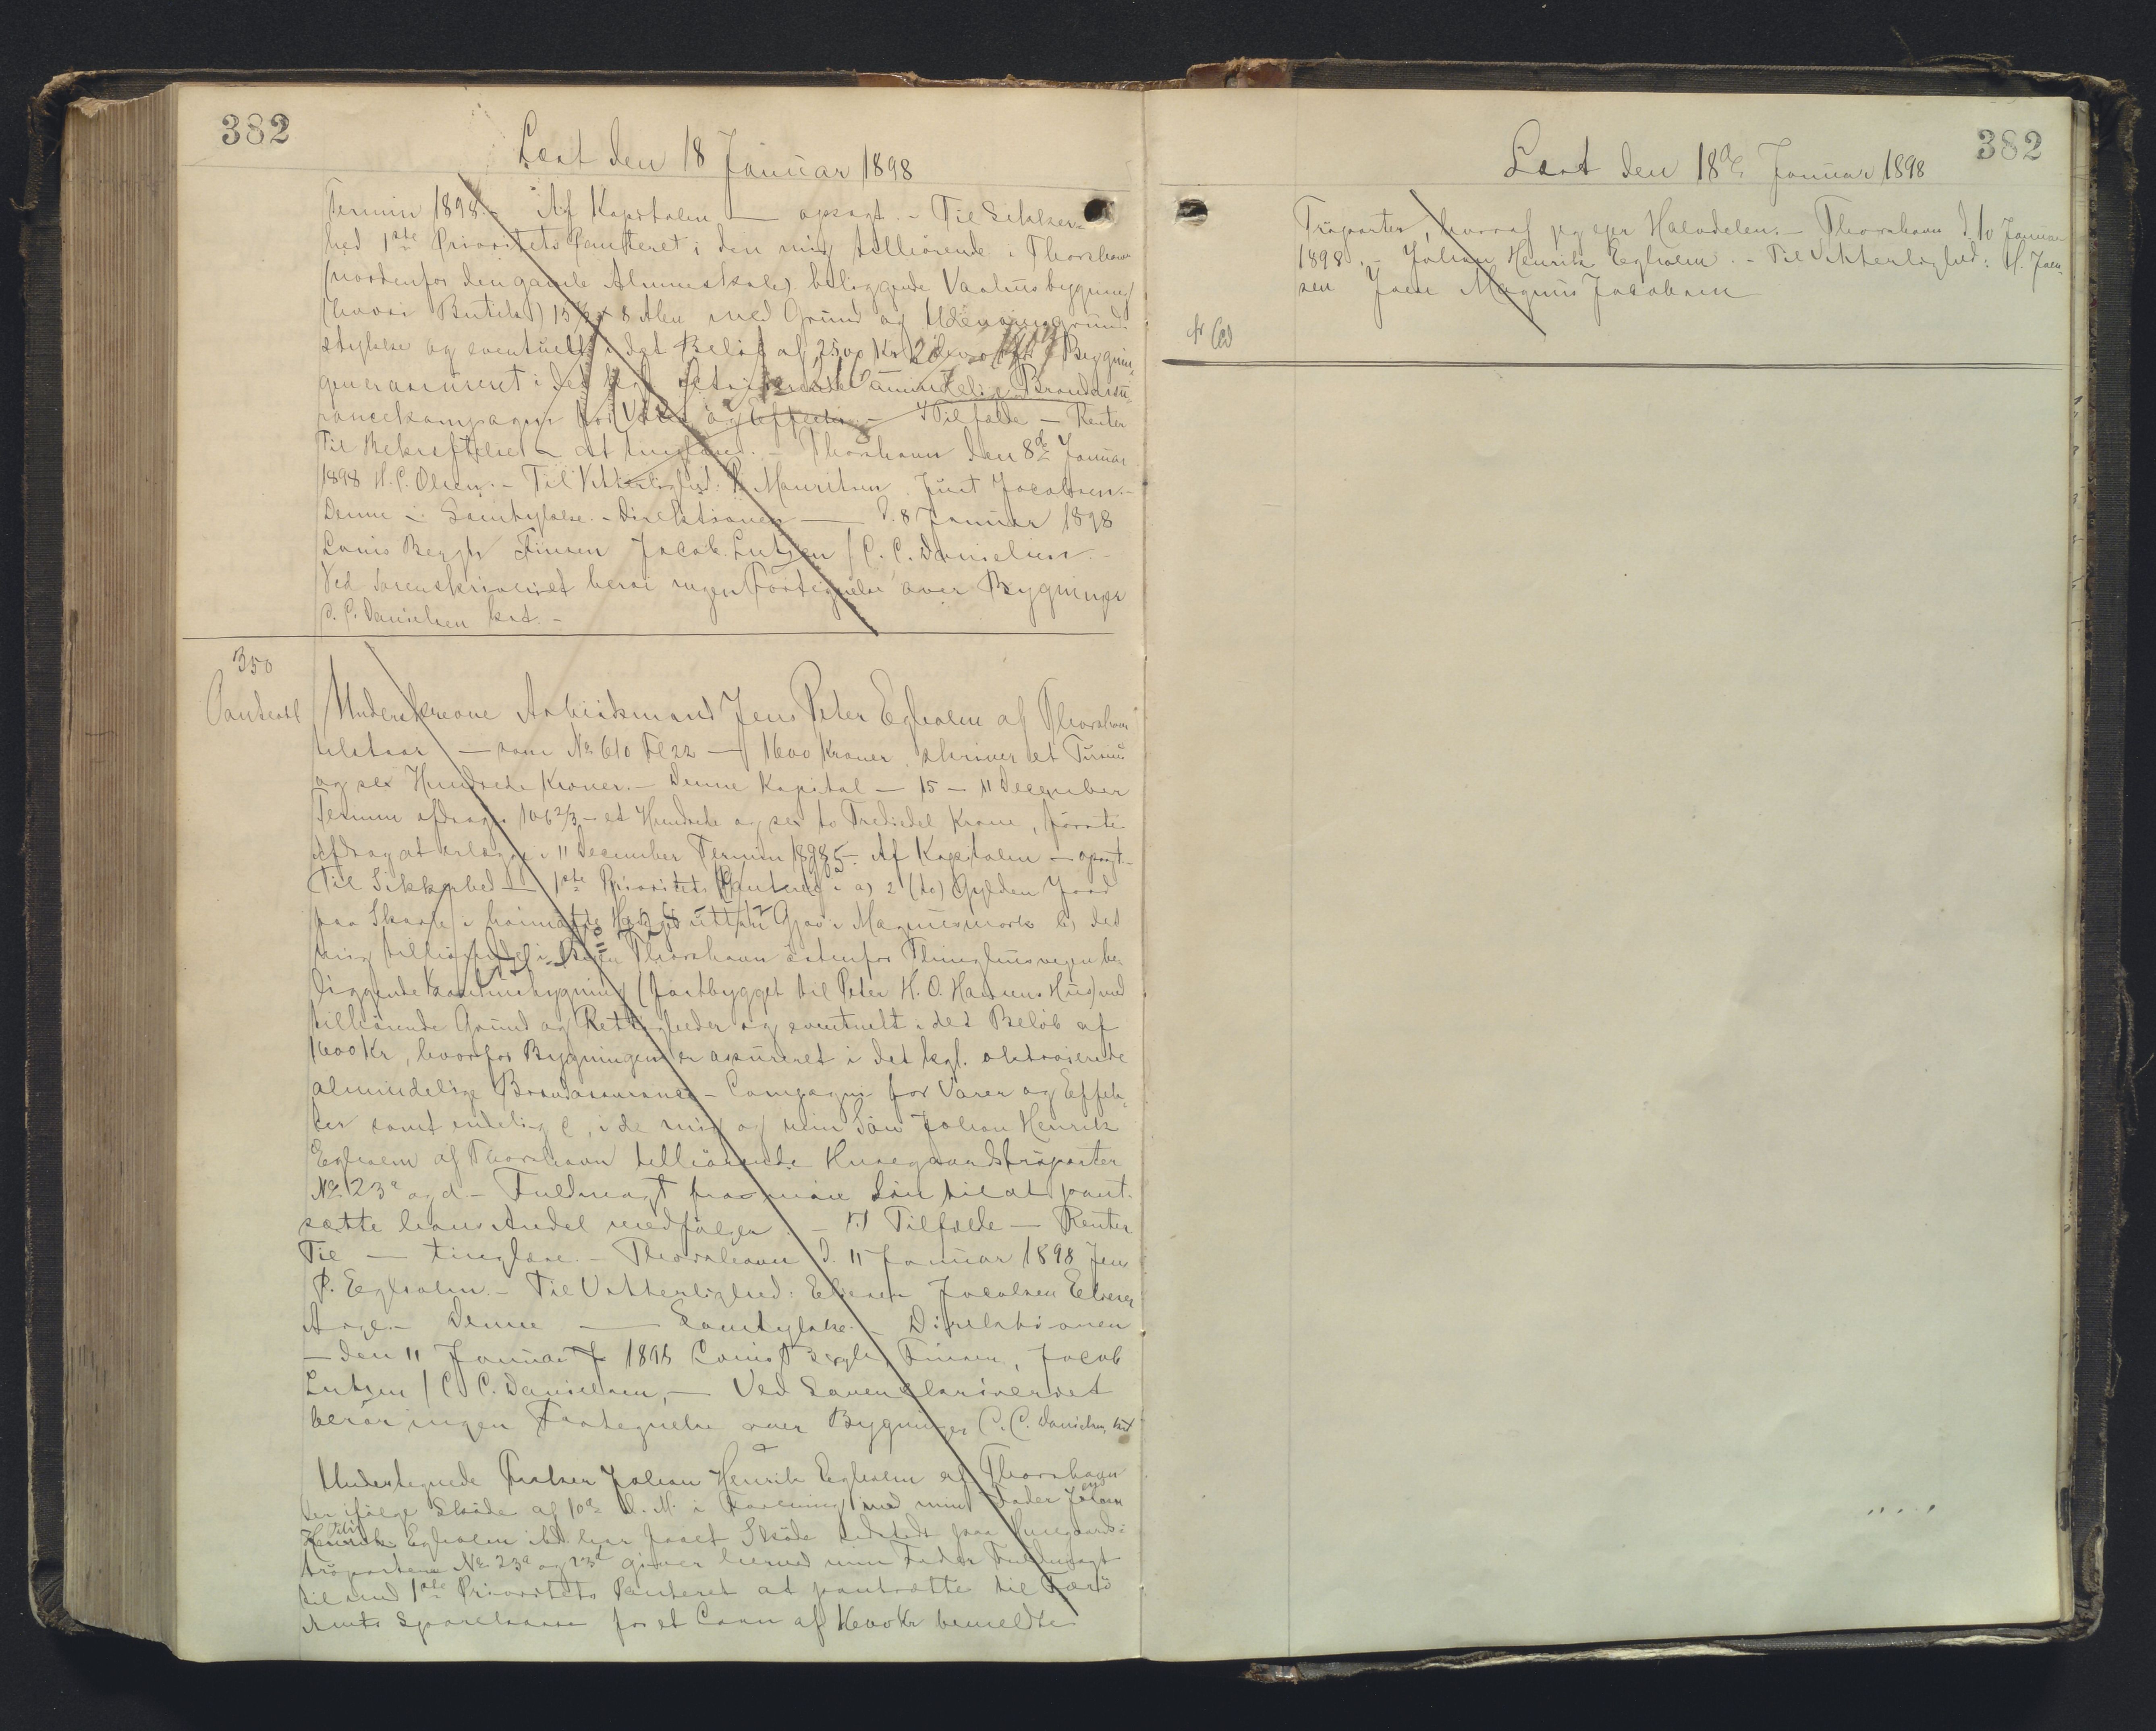 382
Læst den 18 Januar 1898
Termin 1898. – Af Kapitalen — opsagt. – Til Sikker-
hed 1ste Prioritets Panteret i den mig tilhörende i Thorshavn
(nordenfor den gamle Almueskole) beliggende Vaaningsbygning
(hvori Butik) 15 × 8 Alen med Grund og Udenomsgrund
stykke og eventuelt i det Belöb af 2500 Kr Bygnin-
gen er assureret i det kgl. octroierede almindelige Brandassu-
rancekompagni for Varer og Effecter. – I Tilfælde – Renter
Til Bekræftelse – at tinglæse. – Thorshavn den 8de Januar
1898 H. C. Olsen. – Til Vitterlighed: P. Mauritsen Just Jacobsen. –
Denne – Samtykke. – Direktionen — d. 8 Januar 1898
Louis Bergh Finsen Jacob Lützen / C. C. Danielsen. –
Ved Sorenskriveriet beroi ingen Fortegnelse over Bygninger
C. C. Danielsen kst. –
350
Panteobl
Underskrevne Arbeidsmand Jens Peter Egholm af Thorshavn
tilstaar — som No 610 Fol 22 — 1600 Kroner, skriver et Tusind
og sex Hundrede Kroner. – Denne Kapital – 15 – 11 December
Termin afdrages 106 2/3 – et Hundrede og sex to Trediedel Krone, förste
Afdrag at erlægge i 11 December Termin 1898. Af Kapitalen – opsagt. –
Til Sikkerhed — 1ste Prioritets Panteret i a) 2 (to) Gylden Jord
paa i Magnusmörk b) det
mig tilhörende i Thorshavn östenfor Thinghusvegen be-
liggende Vaaningsbygning (fastbygget til Peter H. O. Hansens Hus) med
tilhörende Grund og Rettigheder og eventuelt i det Belöb af
1600 Kr, hvorfor Bygningen er assureret i det kgl. oktroierede
almindelige Brandassurance-Compagni for Varer og Effek-
ter samt endelig c, i de mig og min Sön Johan Henrik
Egholm af Thorshavn tilhörende Husegaardströparter
No. 23a og d. – Fuldmagt fra min Sön til at pant-
sætte hans Andel medfölger. – I Tilfælde – Renter
Til — tinglæse. – Thorshavn d. 11 Januar 1898 Jens
P. Egholm. – Til Vitterlighed: Eliesen Jacobsen
Denne — Samtykke. – Direktionen
– den 11 Januar 1898 Louis Bergh, Finsen, Jacob
Lützen / C. C. Danielsen, – Ved Sorenskriveriet
beroer ingen Fortegnelse over Bygninger C. C. Danielsen kst
Undertegnede Johan Henrik Egholm af Thorshavn
der ifölge Sköde af 10de d. M. i Forening med min Fader
Egholm ibd har faaet Sköde udstedt paa Husegaards-
tröparterne No. 23a og 23d giver herved min Fader Fuldmagt
til med 1ste Prioritets Panteret at pantsætte til Færö
Amts Sparekasse for et Laan af 1600 Kr bemeldte
382
Læst den 18de Januar 1898
Tröparter, hvoraf jeg ejer Halvdelen. – Thorshavn d. 10 Januar
1898. – Johan Henrik Egholm. – Til Vitterlighed: H. Joen-
sen Joen Magnus Jacobsen